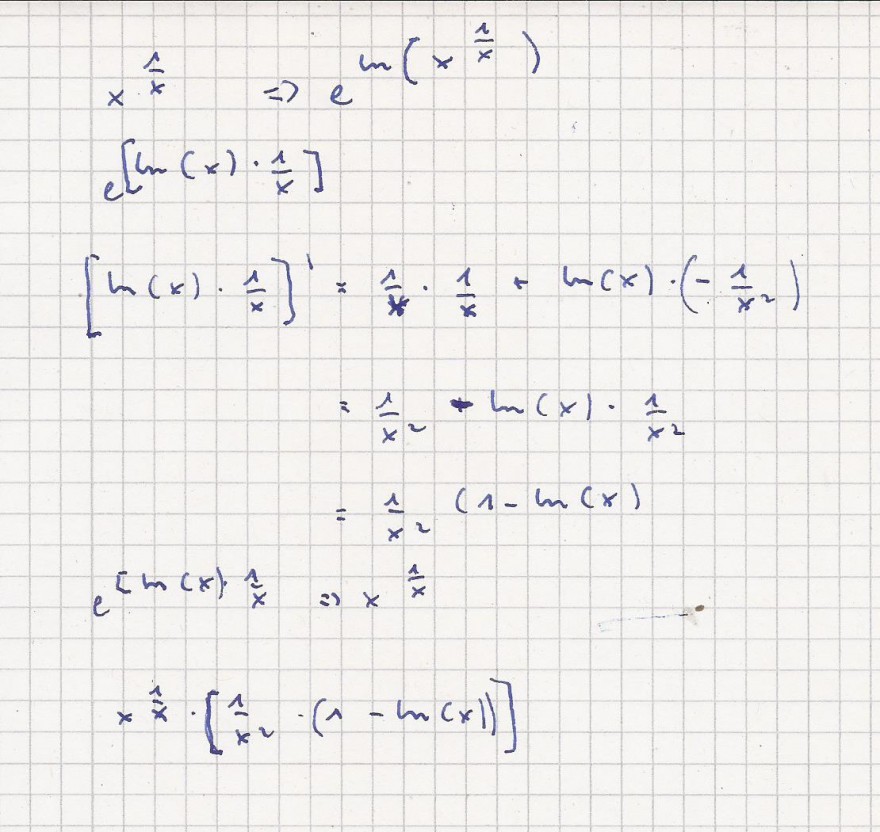 x^(1/x) => e^(ln(x^(1/x)))
e^[ln(x) · 1/x]
[ln(x) · 1/x]' = 1/x · 1/x + ln(x) · (- 1/x²)
= 1/x² - ln(x) · 1/x²
= 1/x² (1 - ln(x)
e^[ln(x) · 1/x => x^(1/x)
x^(1/x) · [1/x² · (1 - ln(x))]